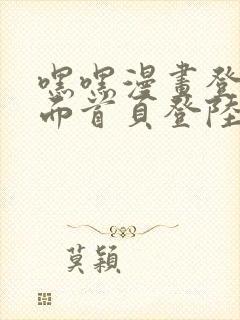 嘿嘿漫畫登
面首頁登陸
莫穎